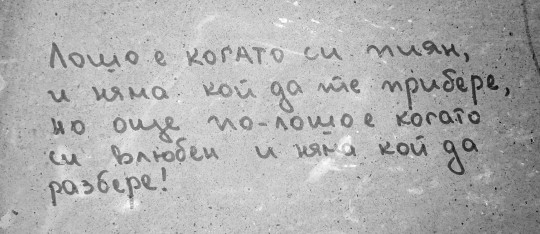 Лошо е когато си пиян,
и няма кой да те прибере,
но още по-лошо е когато
си влюбен и няма кой да
разбере!